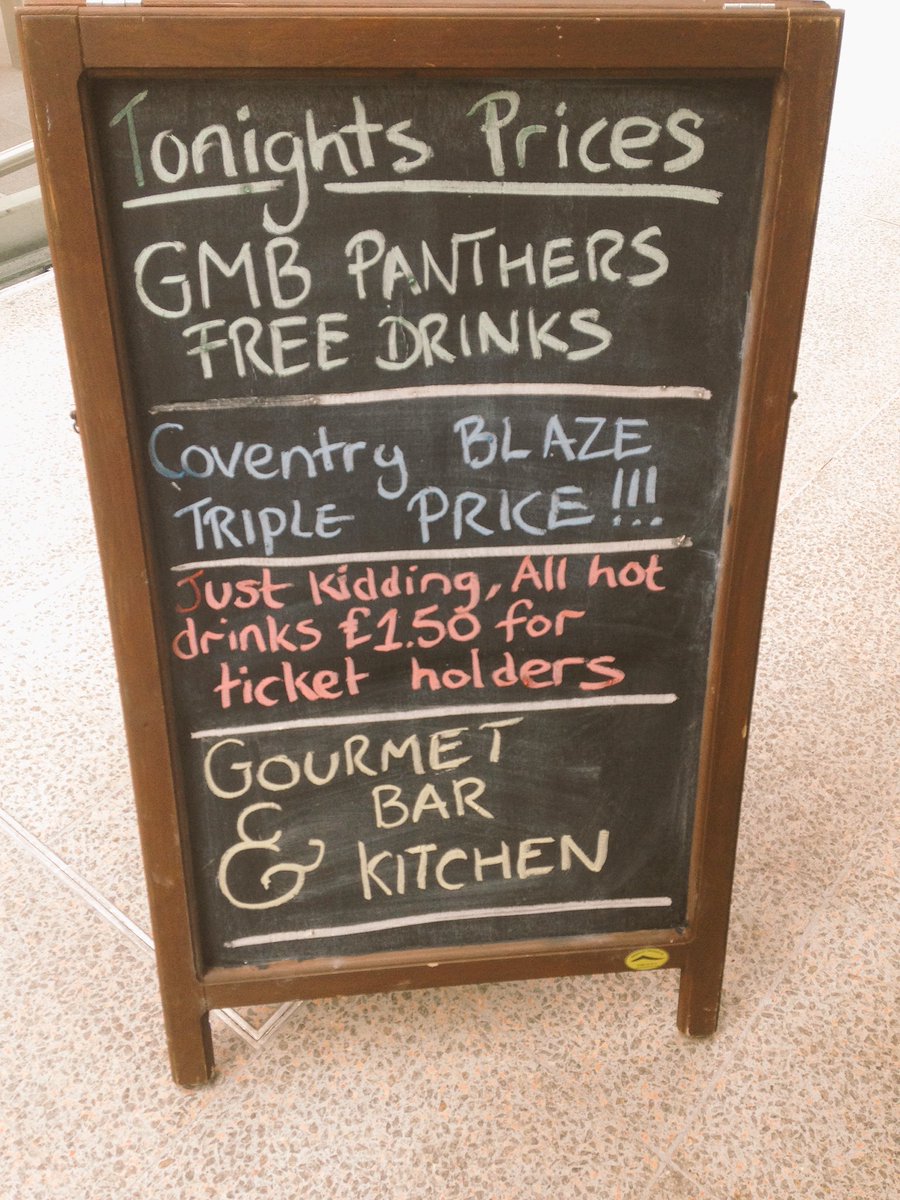 Tonights Prices
GMB PANTHERS
FREE DRINKS
Coventry BLAZE
TRIPLE PRICE!!!
Just kidding, All hot
drinks £1.50 for
ticket holders
GOURMET
BAR
& KITCHEN